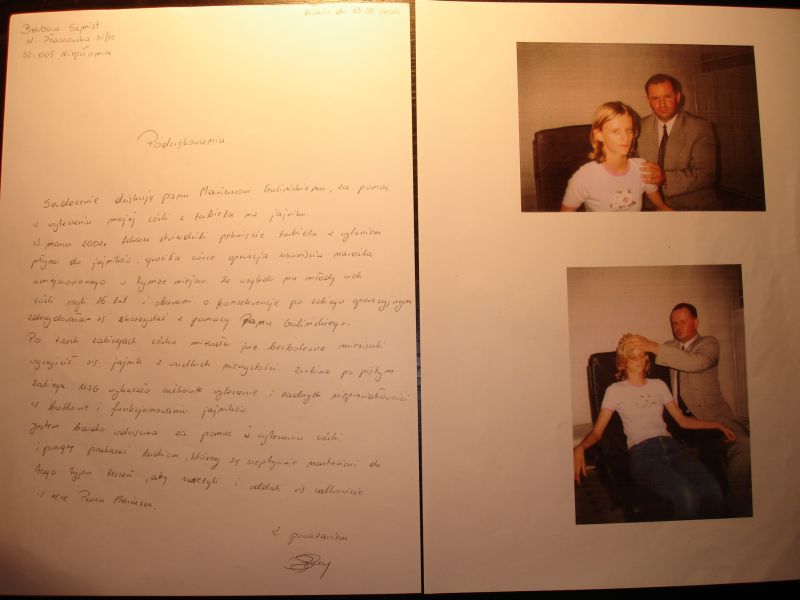 Kraków, dn 13.06.2002r.
Barbara Szmist
ul. Płaszowska 31/12
32-005 Niepołomice
Podziękowania.
Serdecznie dziękuję panu Mariuszowi Gulińskiemu, za pomoc
w wyleczeniu mojej córki z torbiela na jajniku.
W marcu 2002r. lekarze stwierdzili pęknięcie torbiela z wylaniem
płynu do jajników, groziła córce operacja usunięcia narośla
umiejscowionego w tymże miejscu. Ze względu na młody wiek
córki czyli 16 lat i obawami o konsekwencje po zabiegu operacyjnym
zdecydowałam się skorzystać z pomocy Pana Gulińskiego.
Po trzech zabiegach córka miewała już bezbolesne miesiączki
wyczyścił się jajnik z wszelkich nieczystości. Zrobione po piątym
zabiegu USG wykazało całkowite wyleczenie i żadnych nieprawidłowości
w budowie i funkcjonowaniu jajników.
Jestem bardzo wdzięczna za pomoc w wyleczeniu córki
i pragnę przekazać ludziom, którzy są sceptycznie nastawieni do
tego typu leczeń, aby uwierzyli i oddali się całkowicie
w ręce Pana Mariusza.
Z poważaniem